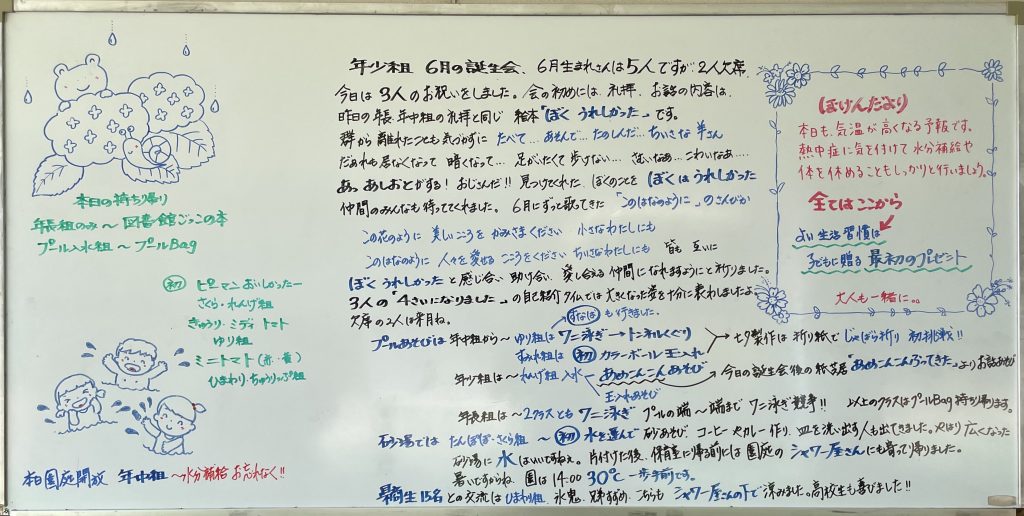 年少組 6月の誕生会、6月生まれさんは5人ですが、2人欠席、
今日は3人のお祝いをしました。会の初めには、礼拝、お話の内容は、
昨日の年長、年中組の礼拝と同じ 絵本「ぼく うれしかった」です。
群から離れたことも気づかずに たべて… あそんで… たのしんだ… ちいさな羊さん
だあれも居なくなって 暗くなって… 足がいたくて歩けない… さむいなあ… こわいなあ…
あっ、あしおとがする! おじさんだ!! 見つけてくれた、ぼくのことを ぼくは うれしかった
仲間のみんなも待っててくれました。6月にずっと歌ってきた「このはなのように」のさんびか
この花のように 美しいこころを かみさまください 小さなわたしにも
このはなのように 人々を愛せる こころをください ちいさなわたしにも 皆も 互いに
ぼく うれしかった と感じ合い、助け合い、愛し合える仲間になれますようにと祈りました。
3人の"4さいになりました"の自己紹介タイムでは大きくなった姿を十分に表わしましたよ
欠席の2人は来月ね。
すなばも行きました。
プールあそびは 年中組から〜ゆり組は ワニ泳ぎ→トンネルくぐり
すみれ組は 初 カラーボール玉入れ
七夕製作は 折り紙で じゃばら折り 初挑戦!!
年少組は〜れんげ組 入水 あめこんこんあそび
玉入れあそび
今日の誕生会後の紙芝居「あめこんこんふってきた」よりお話あそび
年長組は〜2クラスとも ワニ泳ぎ プールの端〜端まで ワニ泳ぎ競争!! 以上のクラスはプールBag持ち帰ります。
砂場では たんぽぽ・さくら組 〜初 水を運んで 砂あそび、コーヒーやカレー作り、皿を洗い出す人も出てきました。やはり広くなった
砂場に 水 はいいですねぇ。片付けた後、保育室に帰る前には 園庭の シャワー屋さんにも寄って帰りました。
暑いですからね、園は14:00 30℃一歩手前です。
高生15名との交流は ひまわり組、氷鬼、 こちらも シャワー屋さんの下で涼みました。高校生も喜びました!!
本日の持ち帰り
年長組のみ〜図書館ごっこの本
プール入水組〜プールBag
初 ピーマン おいしかったー
さくら・れんげ組
きゅうり・ミディトマト
ゆり組
ミニトマト(赤・黄)
ひまわり・ちゅうりっぷ組
本日園庭開放 年中組 〜水分補給 お忘れなく!!
ほけんだより
本日も、気温が高くなる予報です。
熱中症に気を付けて 水分補給や
体を休めることもしっかりと行いましょう。
全てはここから
よい生活習慣は
子どもに贈る 最初のプレゼント
大人も一緒に。。